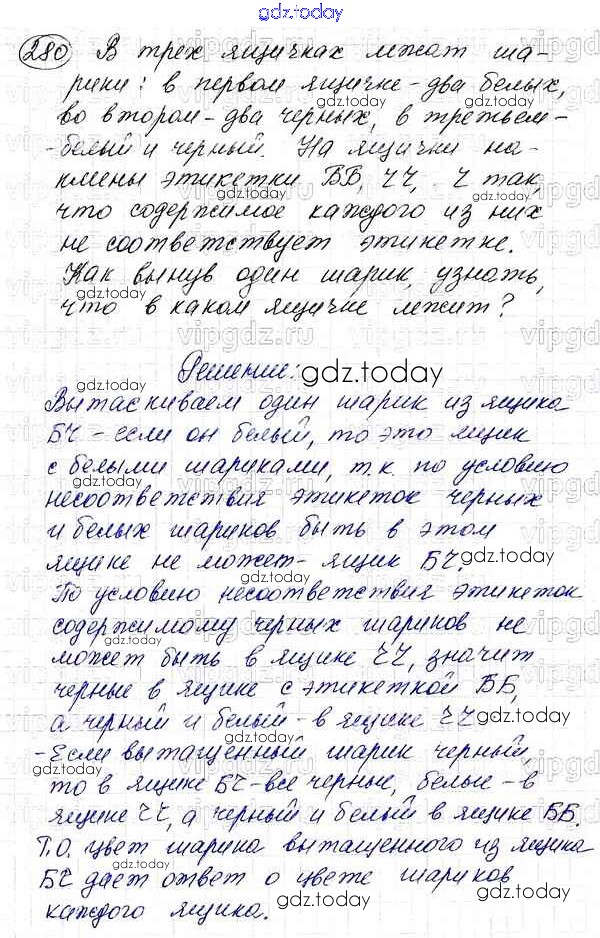 gdz.today
280 В трех ящичках лежат ша-
рики: в первом ящичке - два белых,
во втором - два черных, в третьем -
- белый и черный. На ящички на-
клеены этикетки ББ, ЧЧ, Ч так,
что содержимое каждого из них
не соответствует этикетке.
Как вынув один шарик, узнать,
что в каком ящичке лежит?
Решение:
Вытаскиваем один шарик из ящика
БЧ - если он белый, то это ящик
с белыми шариками, т.к по условию
несоответствия этикеток черных
и белых шариков быть в этом
ящике не может - ящик БЧ.
По условию несоответствия этикеток
содержимому черных шариков не
может быть в ящике ЧЧ, значит
черные в ящике с этикеткой ББ,
а черный и белый - в ящике ЧЧ
- Если вытащенный шарик черный,
то в ящике БЧ - все черные, белые - в
ящике ЧЧ, а черный и белый в ящике ББ.
Т.О. цвет шарика вытащенного из ящика
БЧ дает ответ о цвете шариков
каждого ящика.